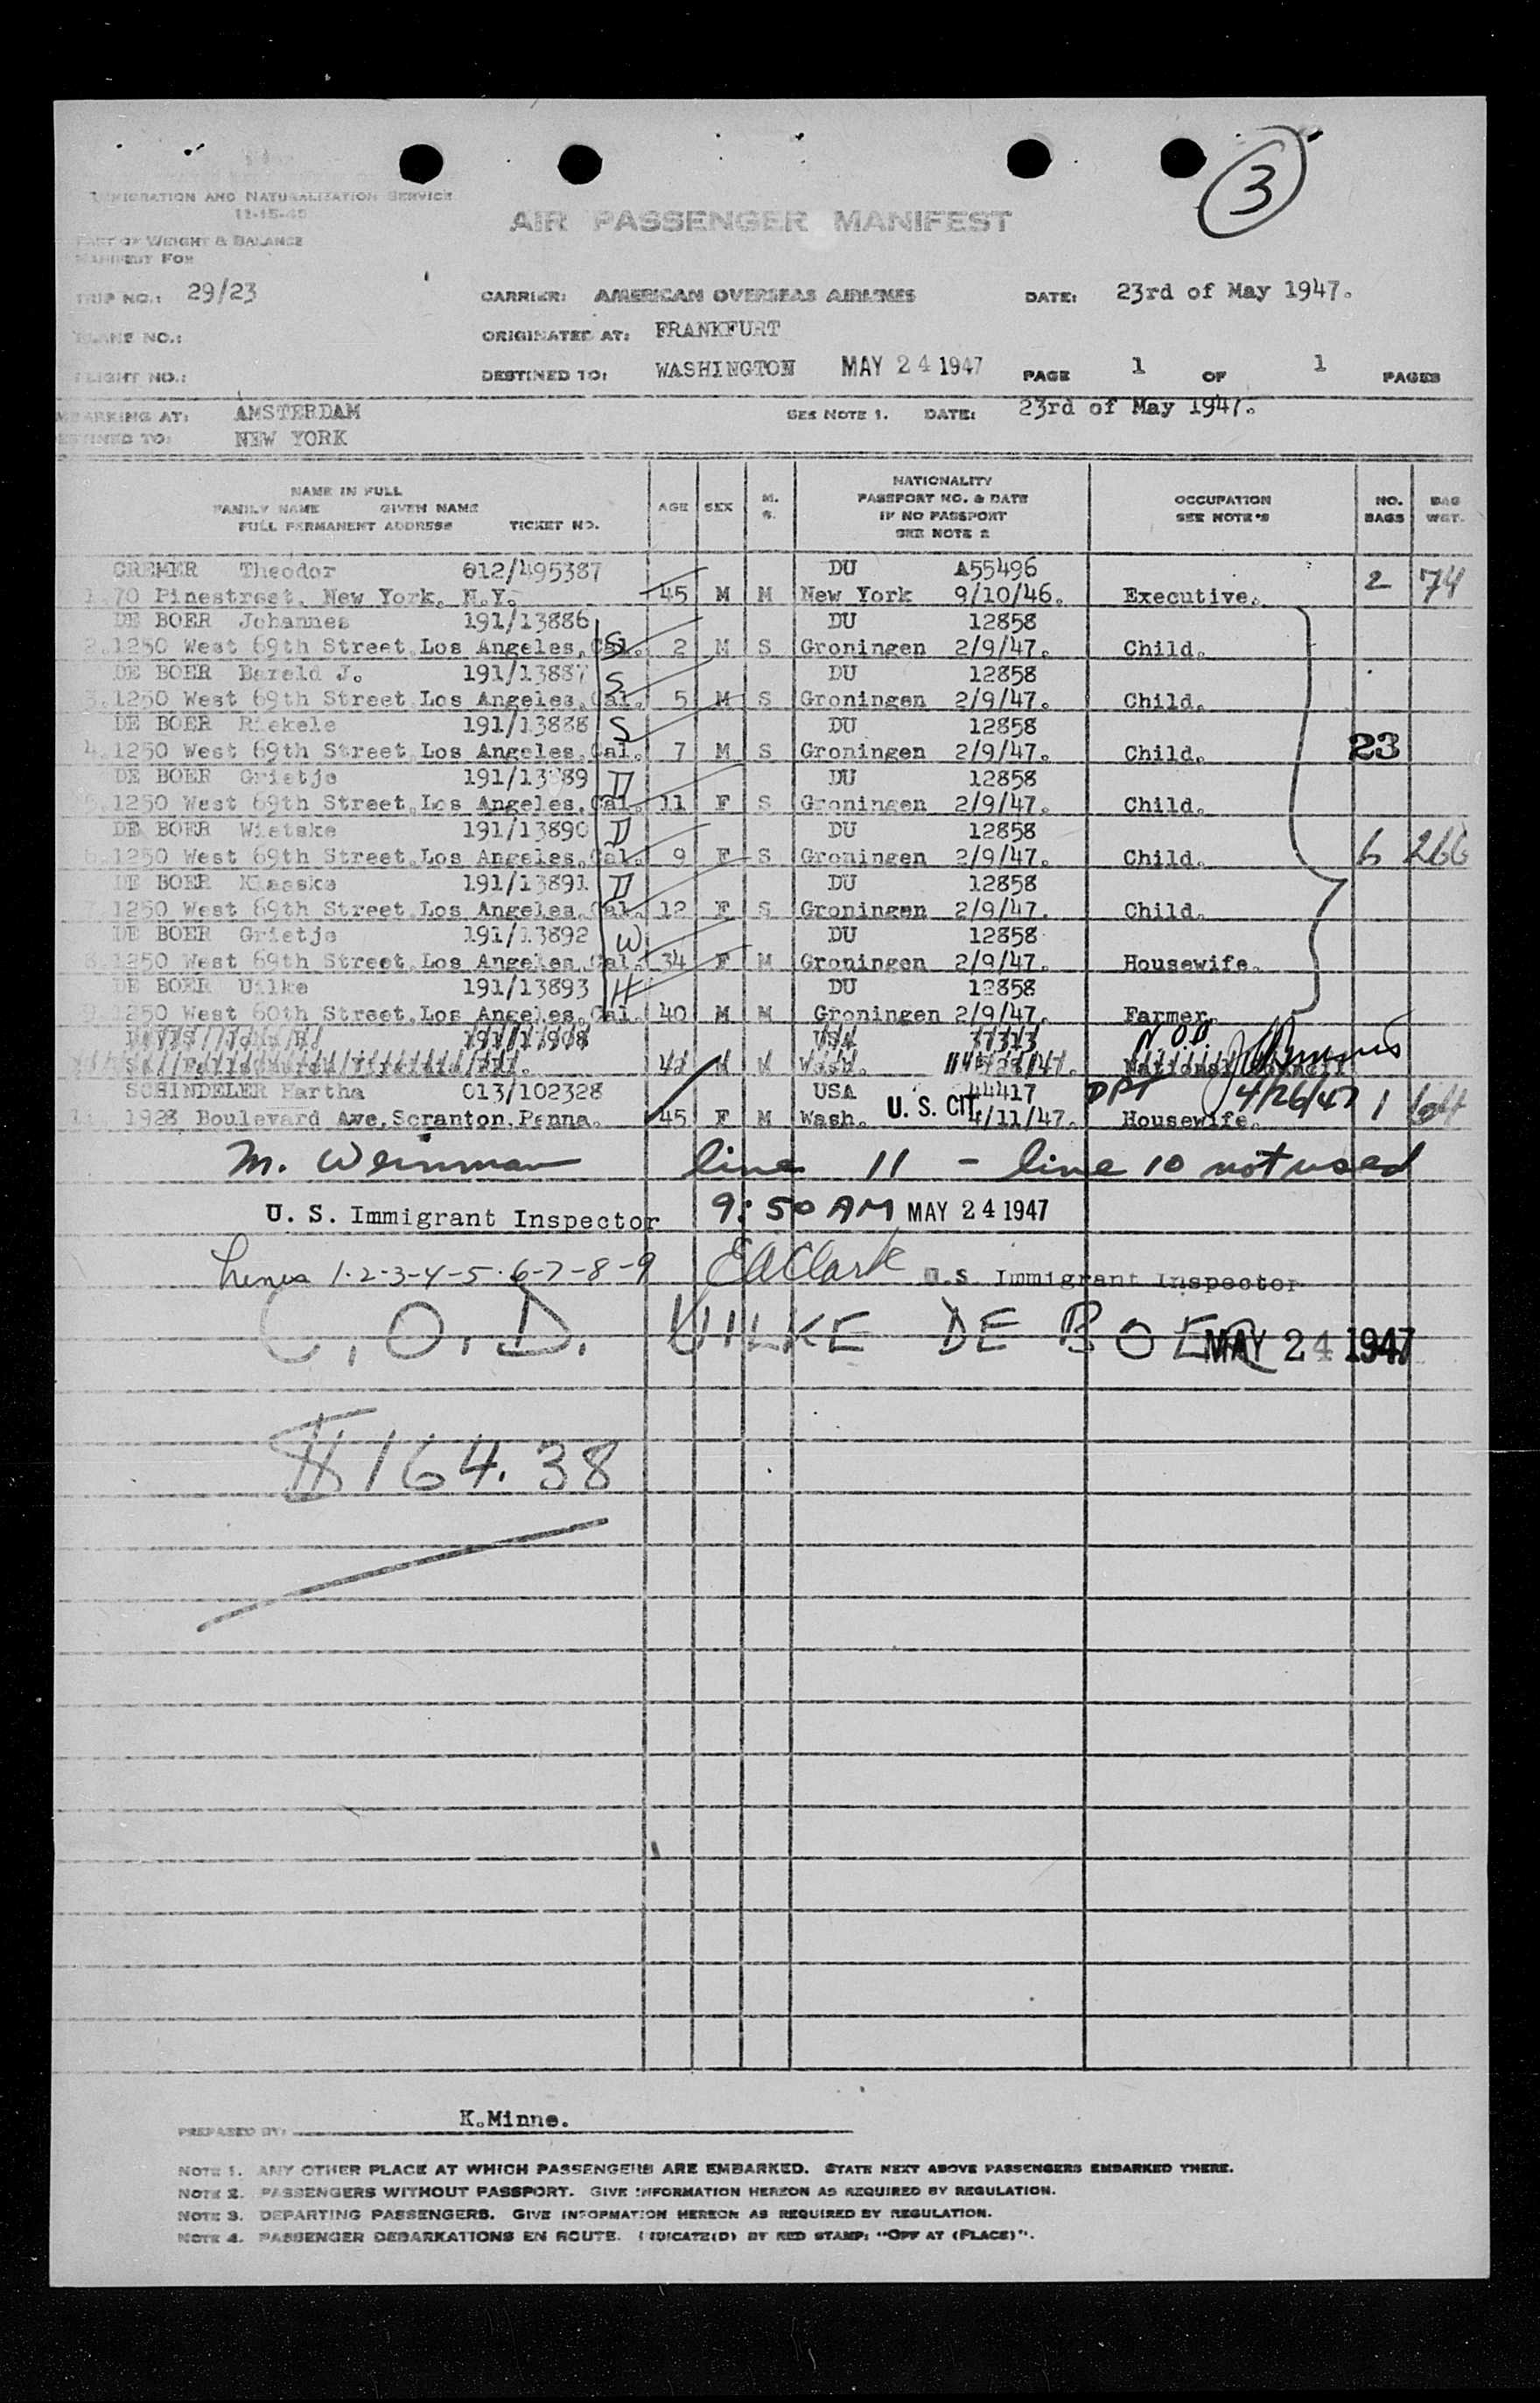 3
IMMIGRATION AND NATURALIZATION SERVICE
11-15-45
AIR PASSENGER MANIFEST
PART OF WEIGHT & BALANCE
MANIFEST FOR
TRIP NO.: 29/23
CARRIER: AMERICAN OVERSEAS AIRLINES
DATE: 23rd of May 1947.
PLANE NO.:
ORIGINATED AT: FRANKFURT
FLIGHT NO.:
DESTINED TO: WASHINGTON MAY 24 1947 PAGE 1 OF 1 PAGES
EMBARKING AT: AMSTERDAM SEE NOTE 1. DATE: 23rd of May 1947.
DESTINED TO: NEW YORK
NAME IN FULL
FAMILY NAME GIVEN NAME
FULL PERMANENT ADDRESS TICKET NO.
AGE SEX M. S.
NATIONALITY
PASSPORT NO. & DATE
IF NO PASSPORT
SEE NOTE 2
OCCUPATION
SEE NOTE'S
NO. BAGS
BAG WGT.
CREMER Theodor 012/495387 DU A55496
1. 70 Pinestreet, New York, N.Y. 45 M M New York 9/10/46. Executive. 2 74
DE BOER Johannes 191/13886 DU 12858
2. 1250 West 69th Street, Los Angeles, Cal. S 2 M S Groningen 2/9/47. Child.
DE BOER Bareld J. 191/13887 DU 12858
3. 1250 West 69th Street Los Angeles, Cal. S 5 M S Groningen 2/9/47. Child.
DE BOER Riekele 191/13888 DU 12858
4. 1250 West 69th Street Los Angeles, Cal. S 7 M S Groningen 2/9/47. Child. 23
DE BOER Grietje 191/13889 DU 12858
5. 1250 West 69th Street, Los Angeles, Cal. D 11 F S Groningen 2/9/47. Child.
DE BOER Wietske 191/13890 DU 12858
6. 1250 West 69th Street, Los Angeles, Cal. D 9 F S Groningen 2/9/47. Child. 6 266
DE BOER Klaaske 191/13891 DU 12858
7. 1250 West 69th Street, Los Angeles, Cal. D 12 F S Groningen 2/9/47. Child.
DE BOER Grietje 191/13892 DU 12858
8. 1250 West 69th Street, Los Angeles, Cal. W 34 F M Groningen 2/9/47. Housewife.
DE BOER Uilke 191/13893 DU 12858
9. 1250 West 60th Street, Los Angeles, Cal. H 40 M M Groningen 2/9/47. Farmer.
USA N.O.B.
Wash.
SCHINDELER Martha 013/102328 USA 44417 DPT 4/26/47
11. 1923 Boulevard Ave, Scranton, Penna. 45 F M Wash. U. S. CIT. 4/11/47. Housewife. 1 64
M. Weinman line 11 - line 10 not used
U. S. Immigrant Inspector 9:50 AM MAY 24 1947
Lines 1-2-3-4-5-6-7-8-9 EAClark U.S. Immigrant Inspector
C.O.D. UILKE DE BOER MAY 24 1947
$164.38
PREPARED BY: K.Minne.
NOTE 1. ANY OTHER PLACE AT WHICH PASSENGERS ARE EMBARKED. STATE NEXT ABOVE PASSENGERS EMBARKED THERE.
NOTE 2. PASSENGERS WITHOUT PASSPORT. GIVE INFORMATION HEREON AS REQUIRED BY REGULATION.
NOTE 3. DEPARTING PASSENGERS. GIVE INFORMATION HEREON AS REQUIRED BY REGULATION.
NOTE 4. PASSENGER DEBARKATIONS EN ROUTE. INDICATE(D) BY RED STAMP: "OFF AT (PLACE)".